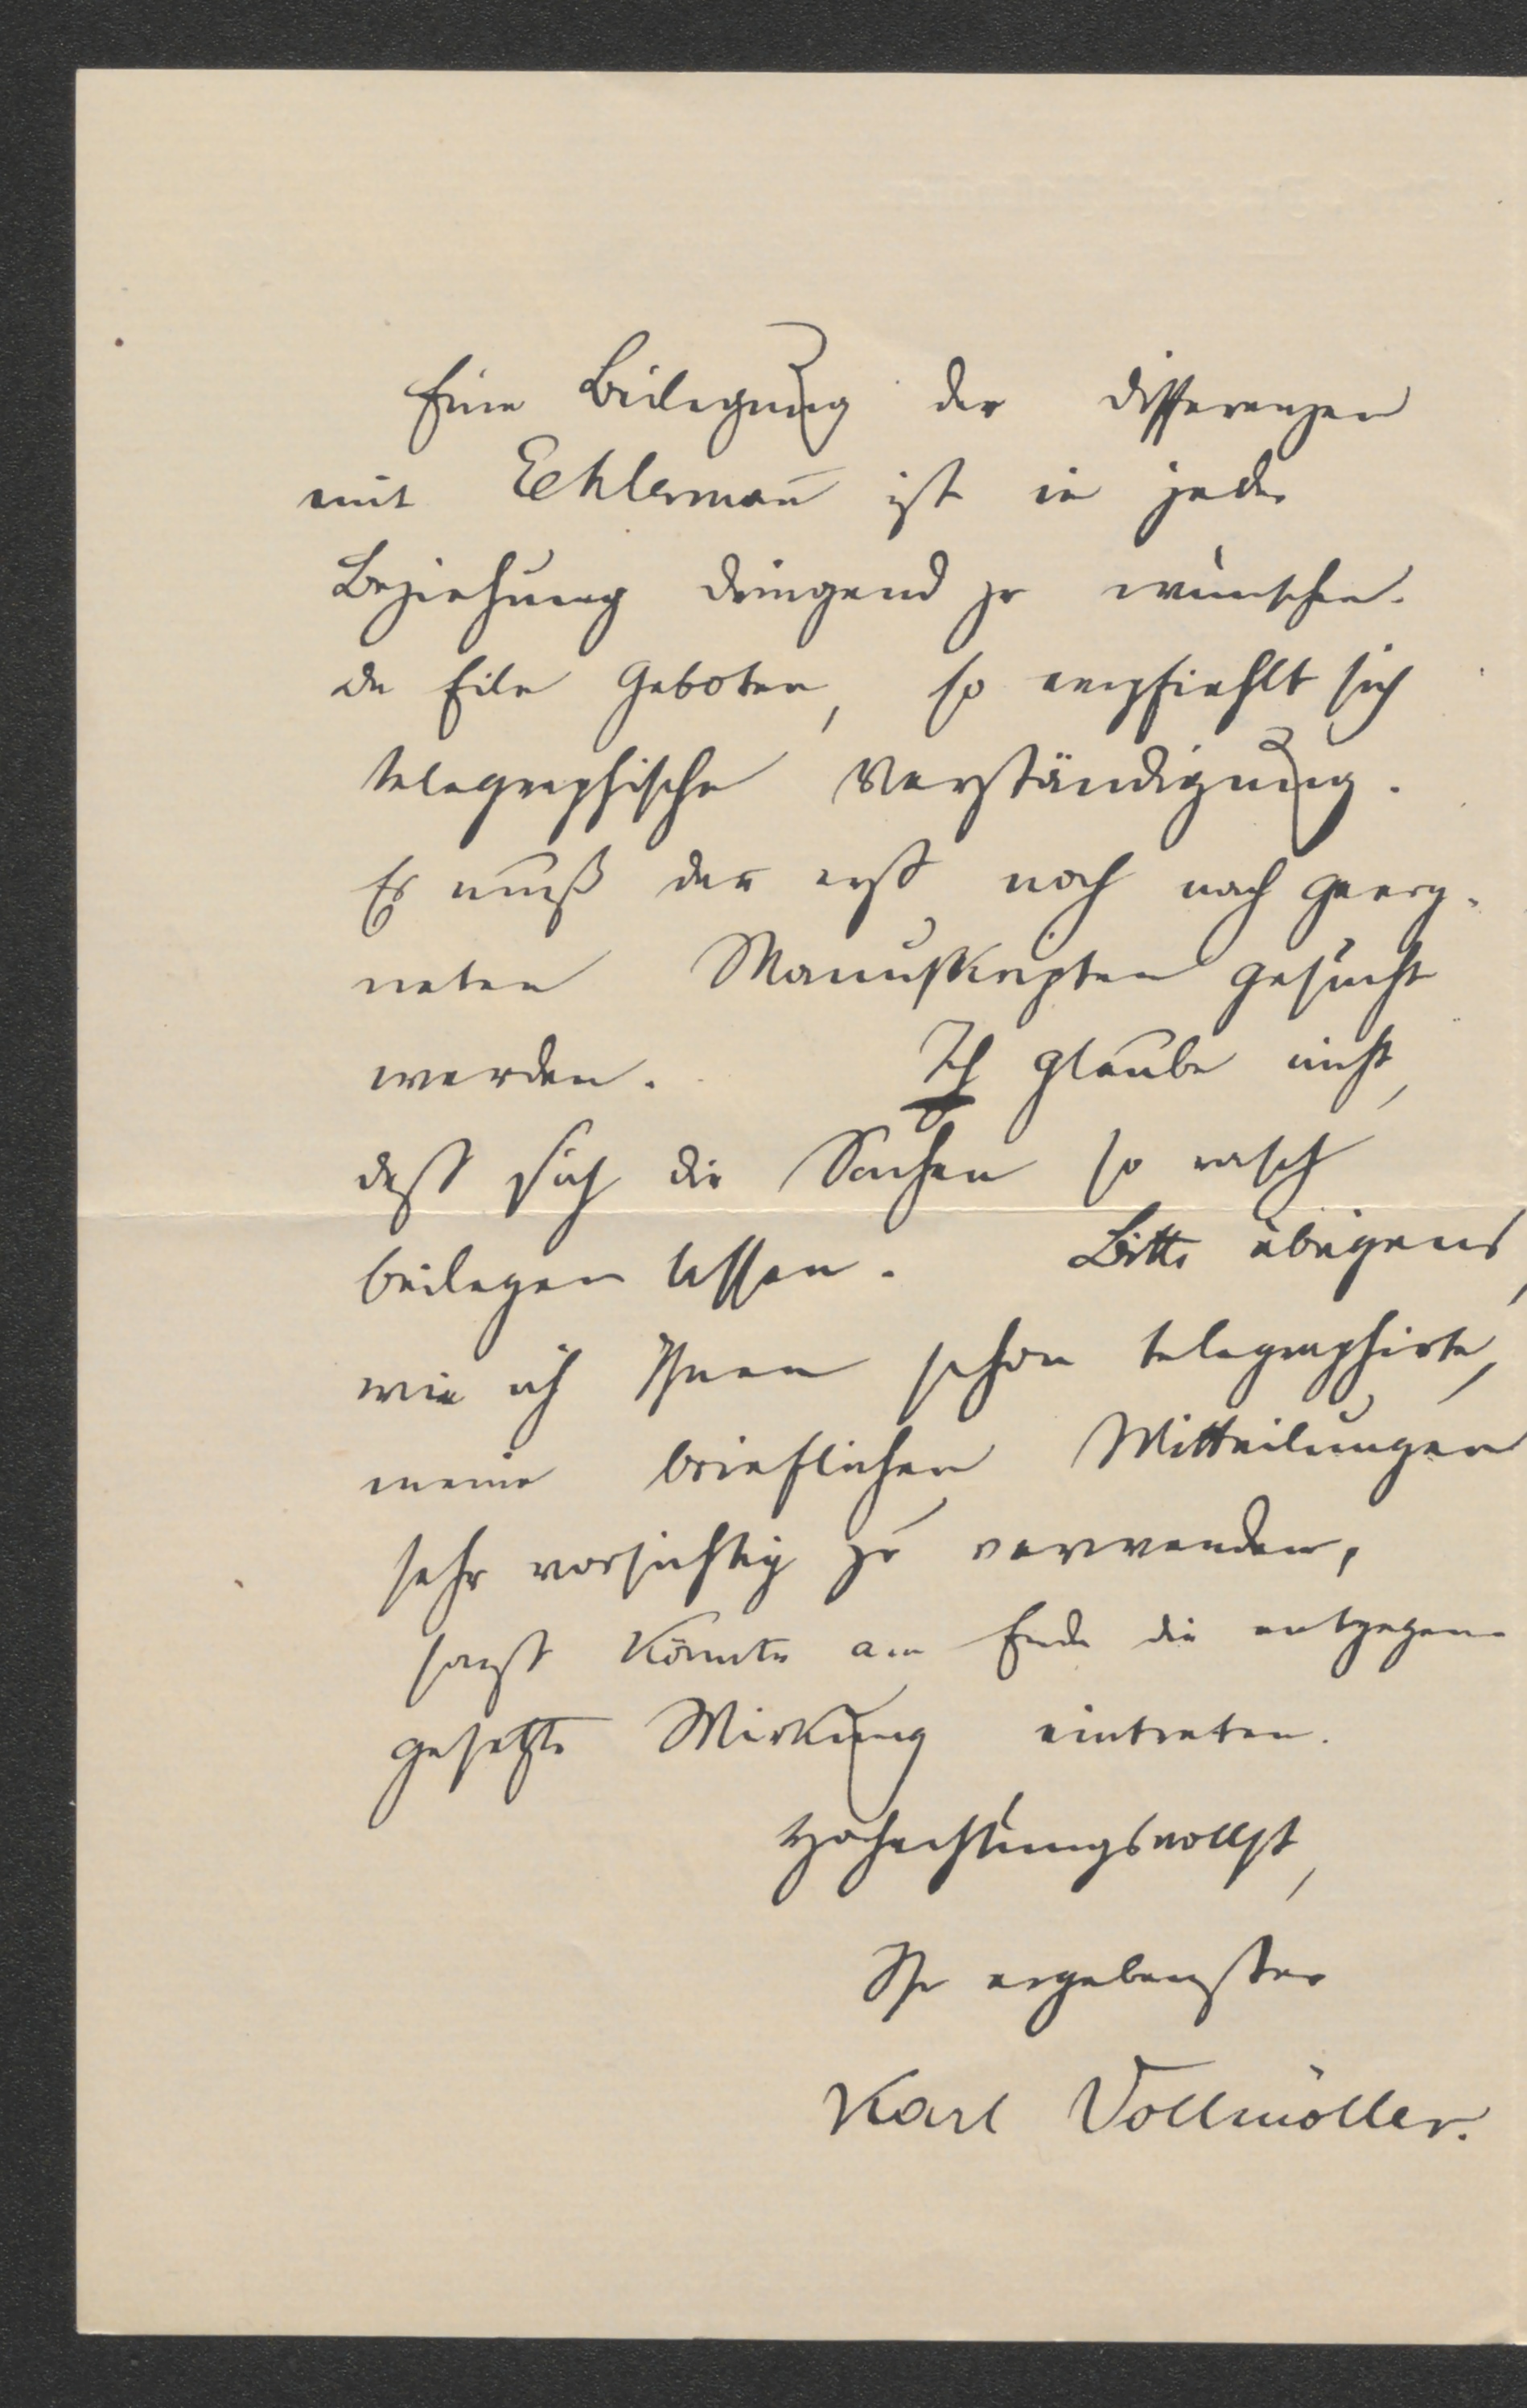 Eine Beilegung der Differenzen
mit Echlermañ ist in jeder
Beziehung dringend zu wünschen.
Da Eile geboten, so empfiehlt sich
telegraphische Verständigung.
Es muß dañ erst noch nach geeig-
neten Manuskripten gesucht
werden. Ich glaube nicht,
daß sich die Sachen so rasch
beilegen lassen. Bitte übrigens,
wie ich Ihnen schon telegraphirte,
meine brieflichen Mitteilungen
sehr vorsichtig zu verwenden,
sonst könnte am Ende die entgegen-
gesetzte Wirkung eintreten.
Hochachtungsvollst,
Ihr ergebenster
Karl Vollmöller.